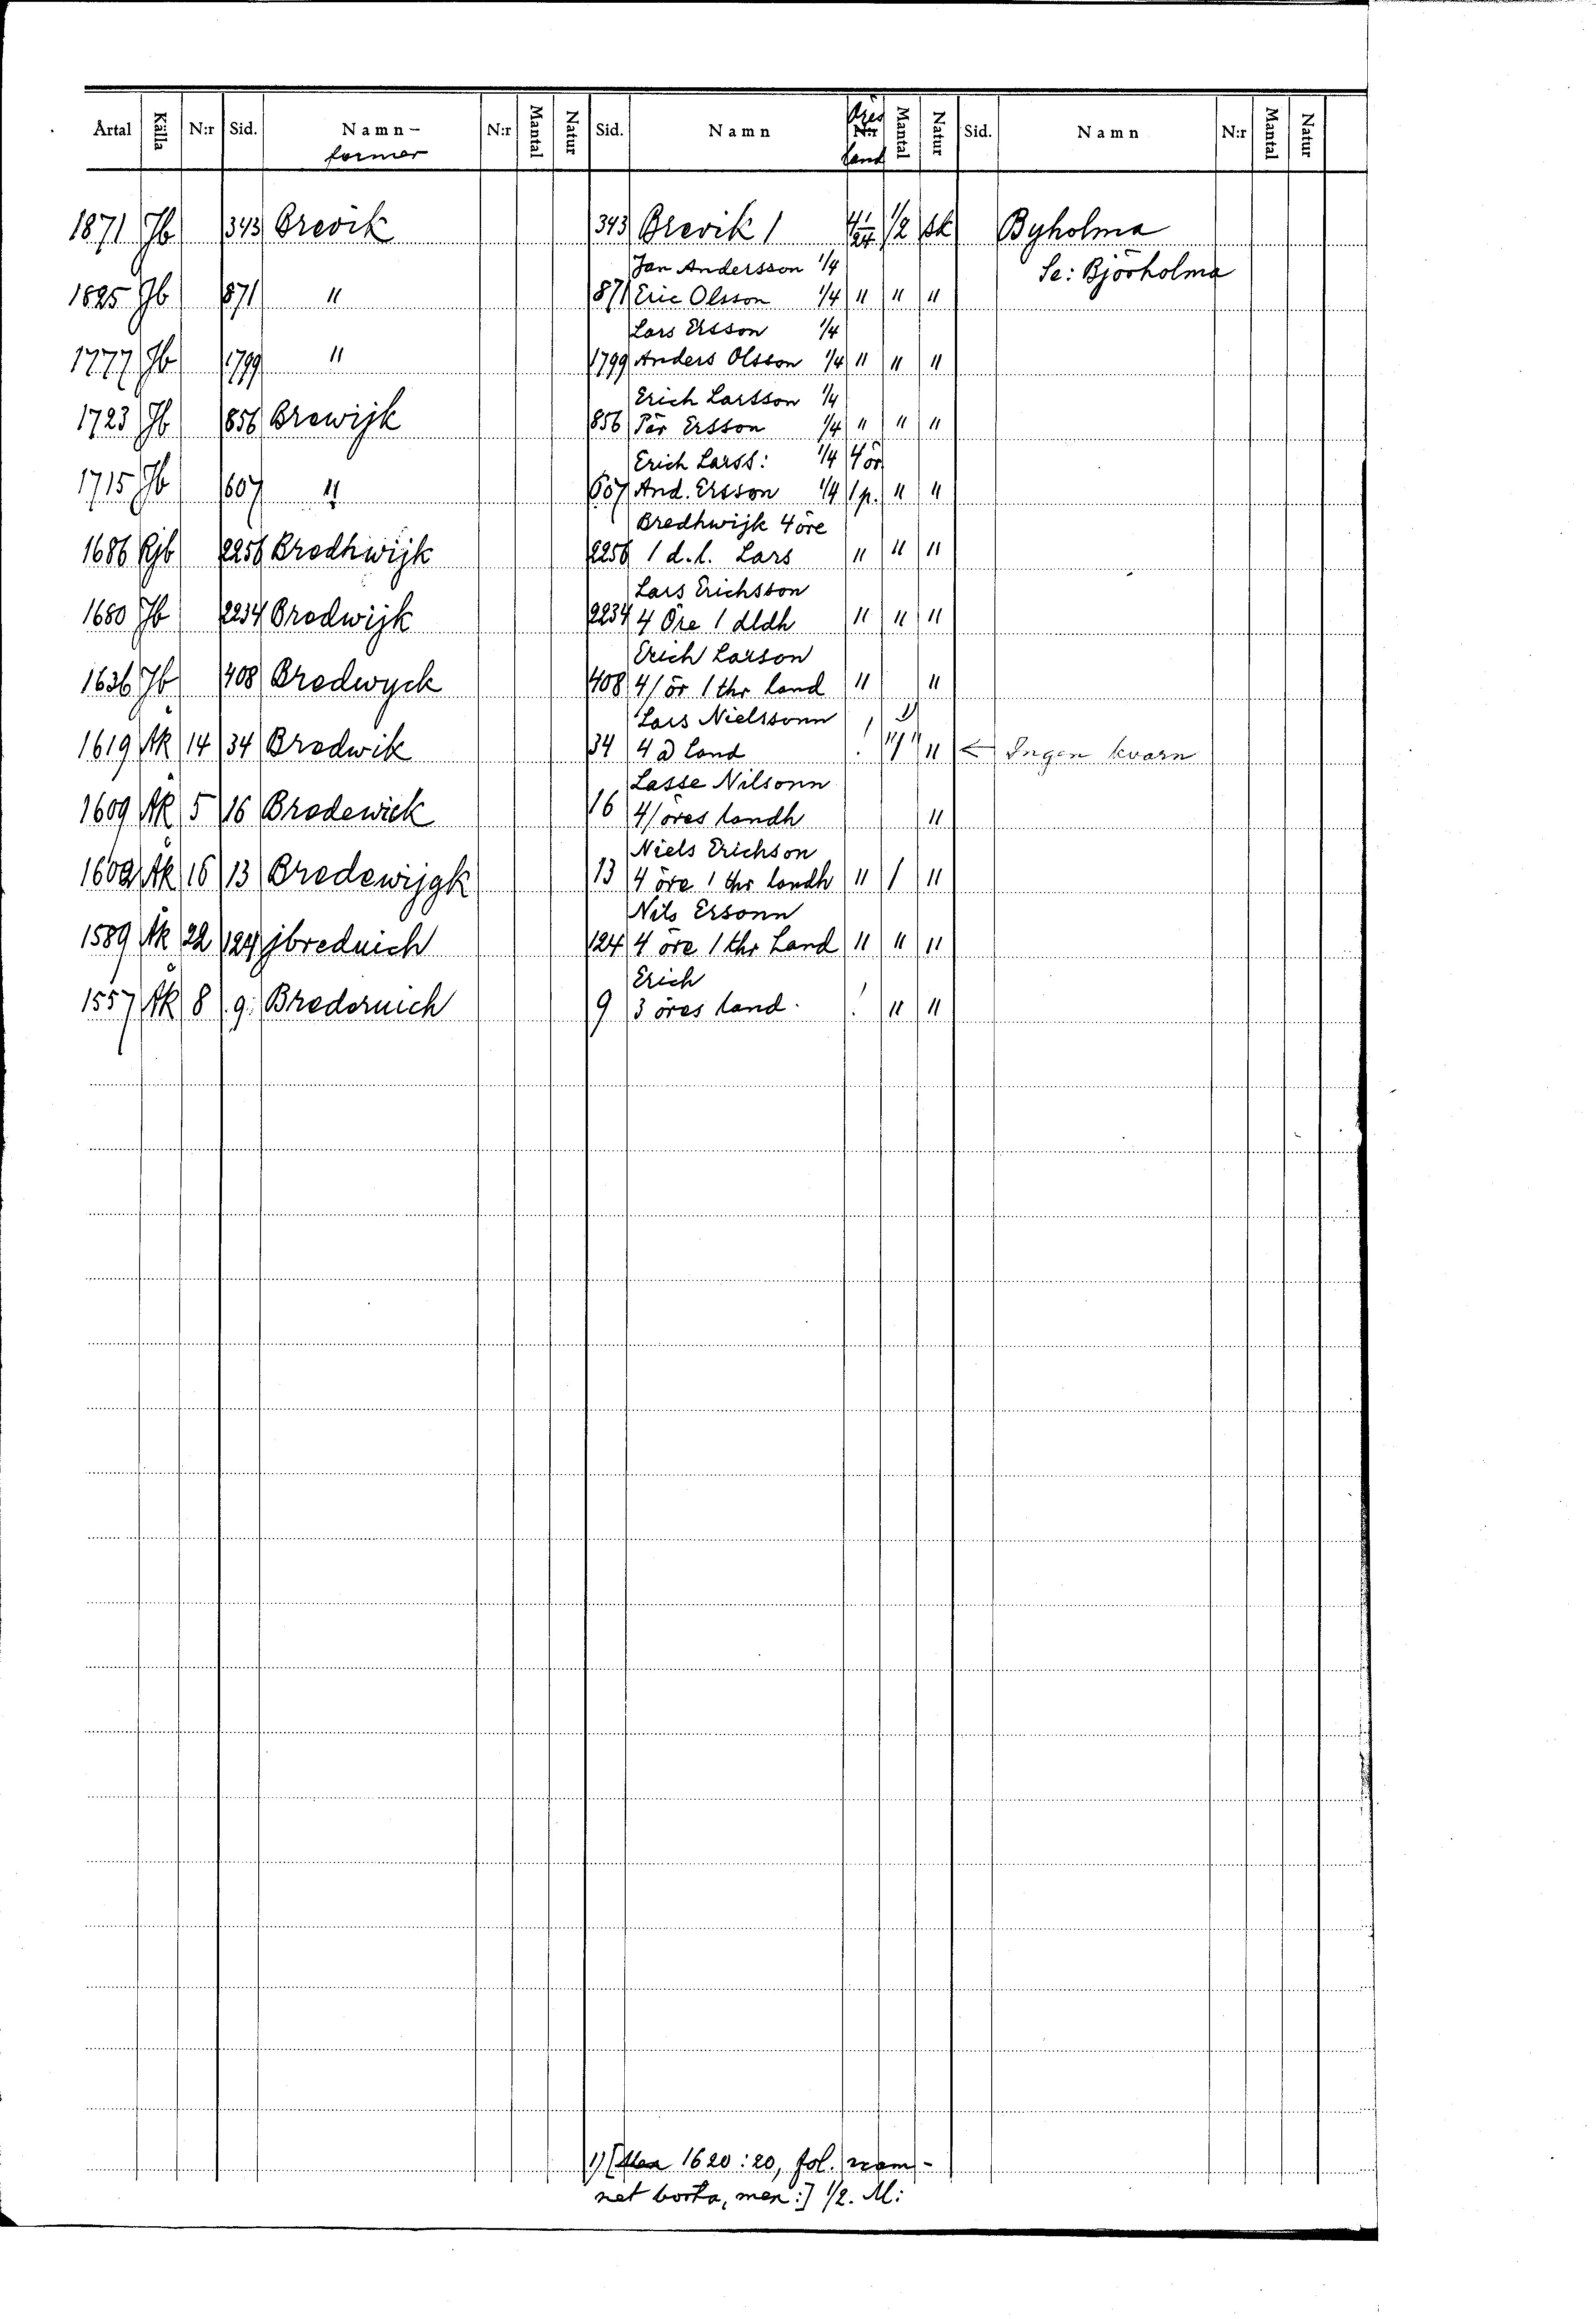 Årtal Källa N:r Sid. Namn- N:r Mantal Natur Sid. Namn Öres N:r Mantal Natur Sid. Namn N:r Mantal Natur
former land
1871 Jb 343 Brevik 343 Brevik 1 4 1/24 1/2 sk Byholma
Jan Andersson 1/4 Se: Björholma
1825 Jb 871 " 871 Eric Olsson 1/4 " " "
Lars Ersson 1/4
1777 Jb 1799 " 1799 Anders Olsson 1/4 " " "
Erich Larsson 1/4
1723 Jb 856 Brewijk 856 Pär Ersson 1/4 " " "
Erich Larss: 1/4 4 ör
1715 Jb 607 " 607 And. Ersson 1/4 1 p. " "
Bredhwijk 4 öre
1686 Rjb 2256 Bredhwijk 2256 1 d.l. Lars " " "
Lars Erichsson
1680 Jb 2234 Bredwijk 2234 4 Öre 1 dldh " " "
Erich Larson
1636 Jb 408 Bredwyck 408 4/ör 1 thr land " "
Lars Nielssonn 1)
1619 Åk 14 34 Bredwik 34 4 land ! "1" " ← Ingen kvarn
Lasse Nilsonn
1609 ÅK 5 16 Bredewick 16 4/öres landh "
Niels Erichson
1602 Åk 16 13 Bredewijgk 13 4 öre 1 thr landh " 1 "
Nils Ersonn
1589 Åk 22 124 jbreduich 124 4 öre 1 thr Land " " "
Erich
1557 ÅK 8 9: Brederuich 9 3 öres land. ! " "
1) [Men 1620:20, fol. nam-
net borta, men:] 1/2. M: